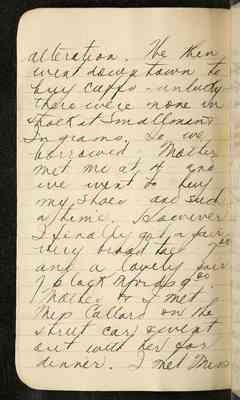 alteration. We then
went down town to
buy cuffs - unlucky
there were none in
stock at Smallman &
Ingrams. So we
borrowed. Mother
met me at 4 and
we went to buy
my shoes and such
a time. However
I finally got a pair
very broad toes
and a lovely pair
of black
Mother & I met
Miss Callard on the
street car & went
out with her for
dinner. I met Miss